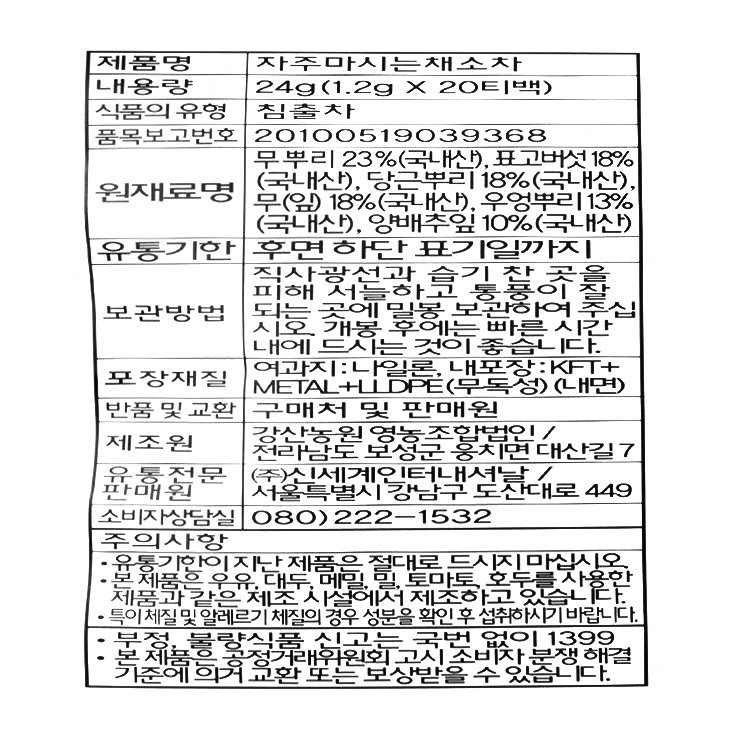 제품명 자주마시는채소차
내용량 24g(1.2g X 20티백)
식품의 유형 침출차
품목보고번호 20100519039368
원재료명 무뿌리 23%(국내산), 표고버섯 18%
(국내산), 당근뿌리 18%(국내산),
무(잎) 18%(국내산), 우엉뿌리 13%
(국내산), 양배추잎 10%(국내산)
유통기한 후면 하단 표기일까지
보관방법 직사광선과 습기 찬 곳을
피해 서늘하고 통풍이 잘
되는 곳에 밀봉 보관하여 주십
시오. 개봉 후에는 빠른 시간
내에 드시는 것이 좋습니다.
포장재질 여과지:나일론, 내포장:KFT+
METAL+LLDPE(무독성)(내면)
반품 및 교환 구매처 및 판매원
제조원 강산농원 영농조합법인 /
전라남도 보성군 웅치면 대산길 7
유통전문 판매원 (주)신세계인터내셔날 /
서울특별시 강남구 도산대로 449
소비자상담실 080)222-1532
주의사항
• 유통기한이 지난 제품은 절대로 드시지 마십시오.
• 본 제품은 우유, 대두, 메밀, 밀, 토마토, 호두를 사용한
제품과 같은 제조 시설에서 제조하고 있습니다.
• 특이체질 및 알레르기 체질의 경우 성분을 확인 후 섭취하시기 바랍니다.
• 부정, 불량식품 신고는 국번 없이 1399
• 본 제품은 공정거래위원회 고시 소비자 분쟁 해결
기준에 의거 교환 또는 보상받을 수 있습니다.